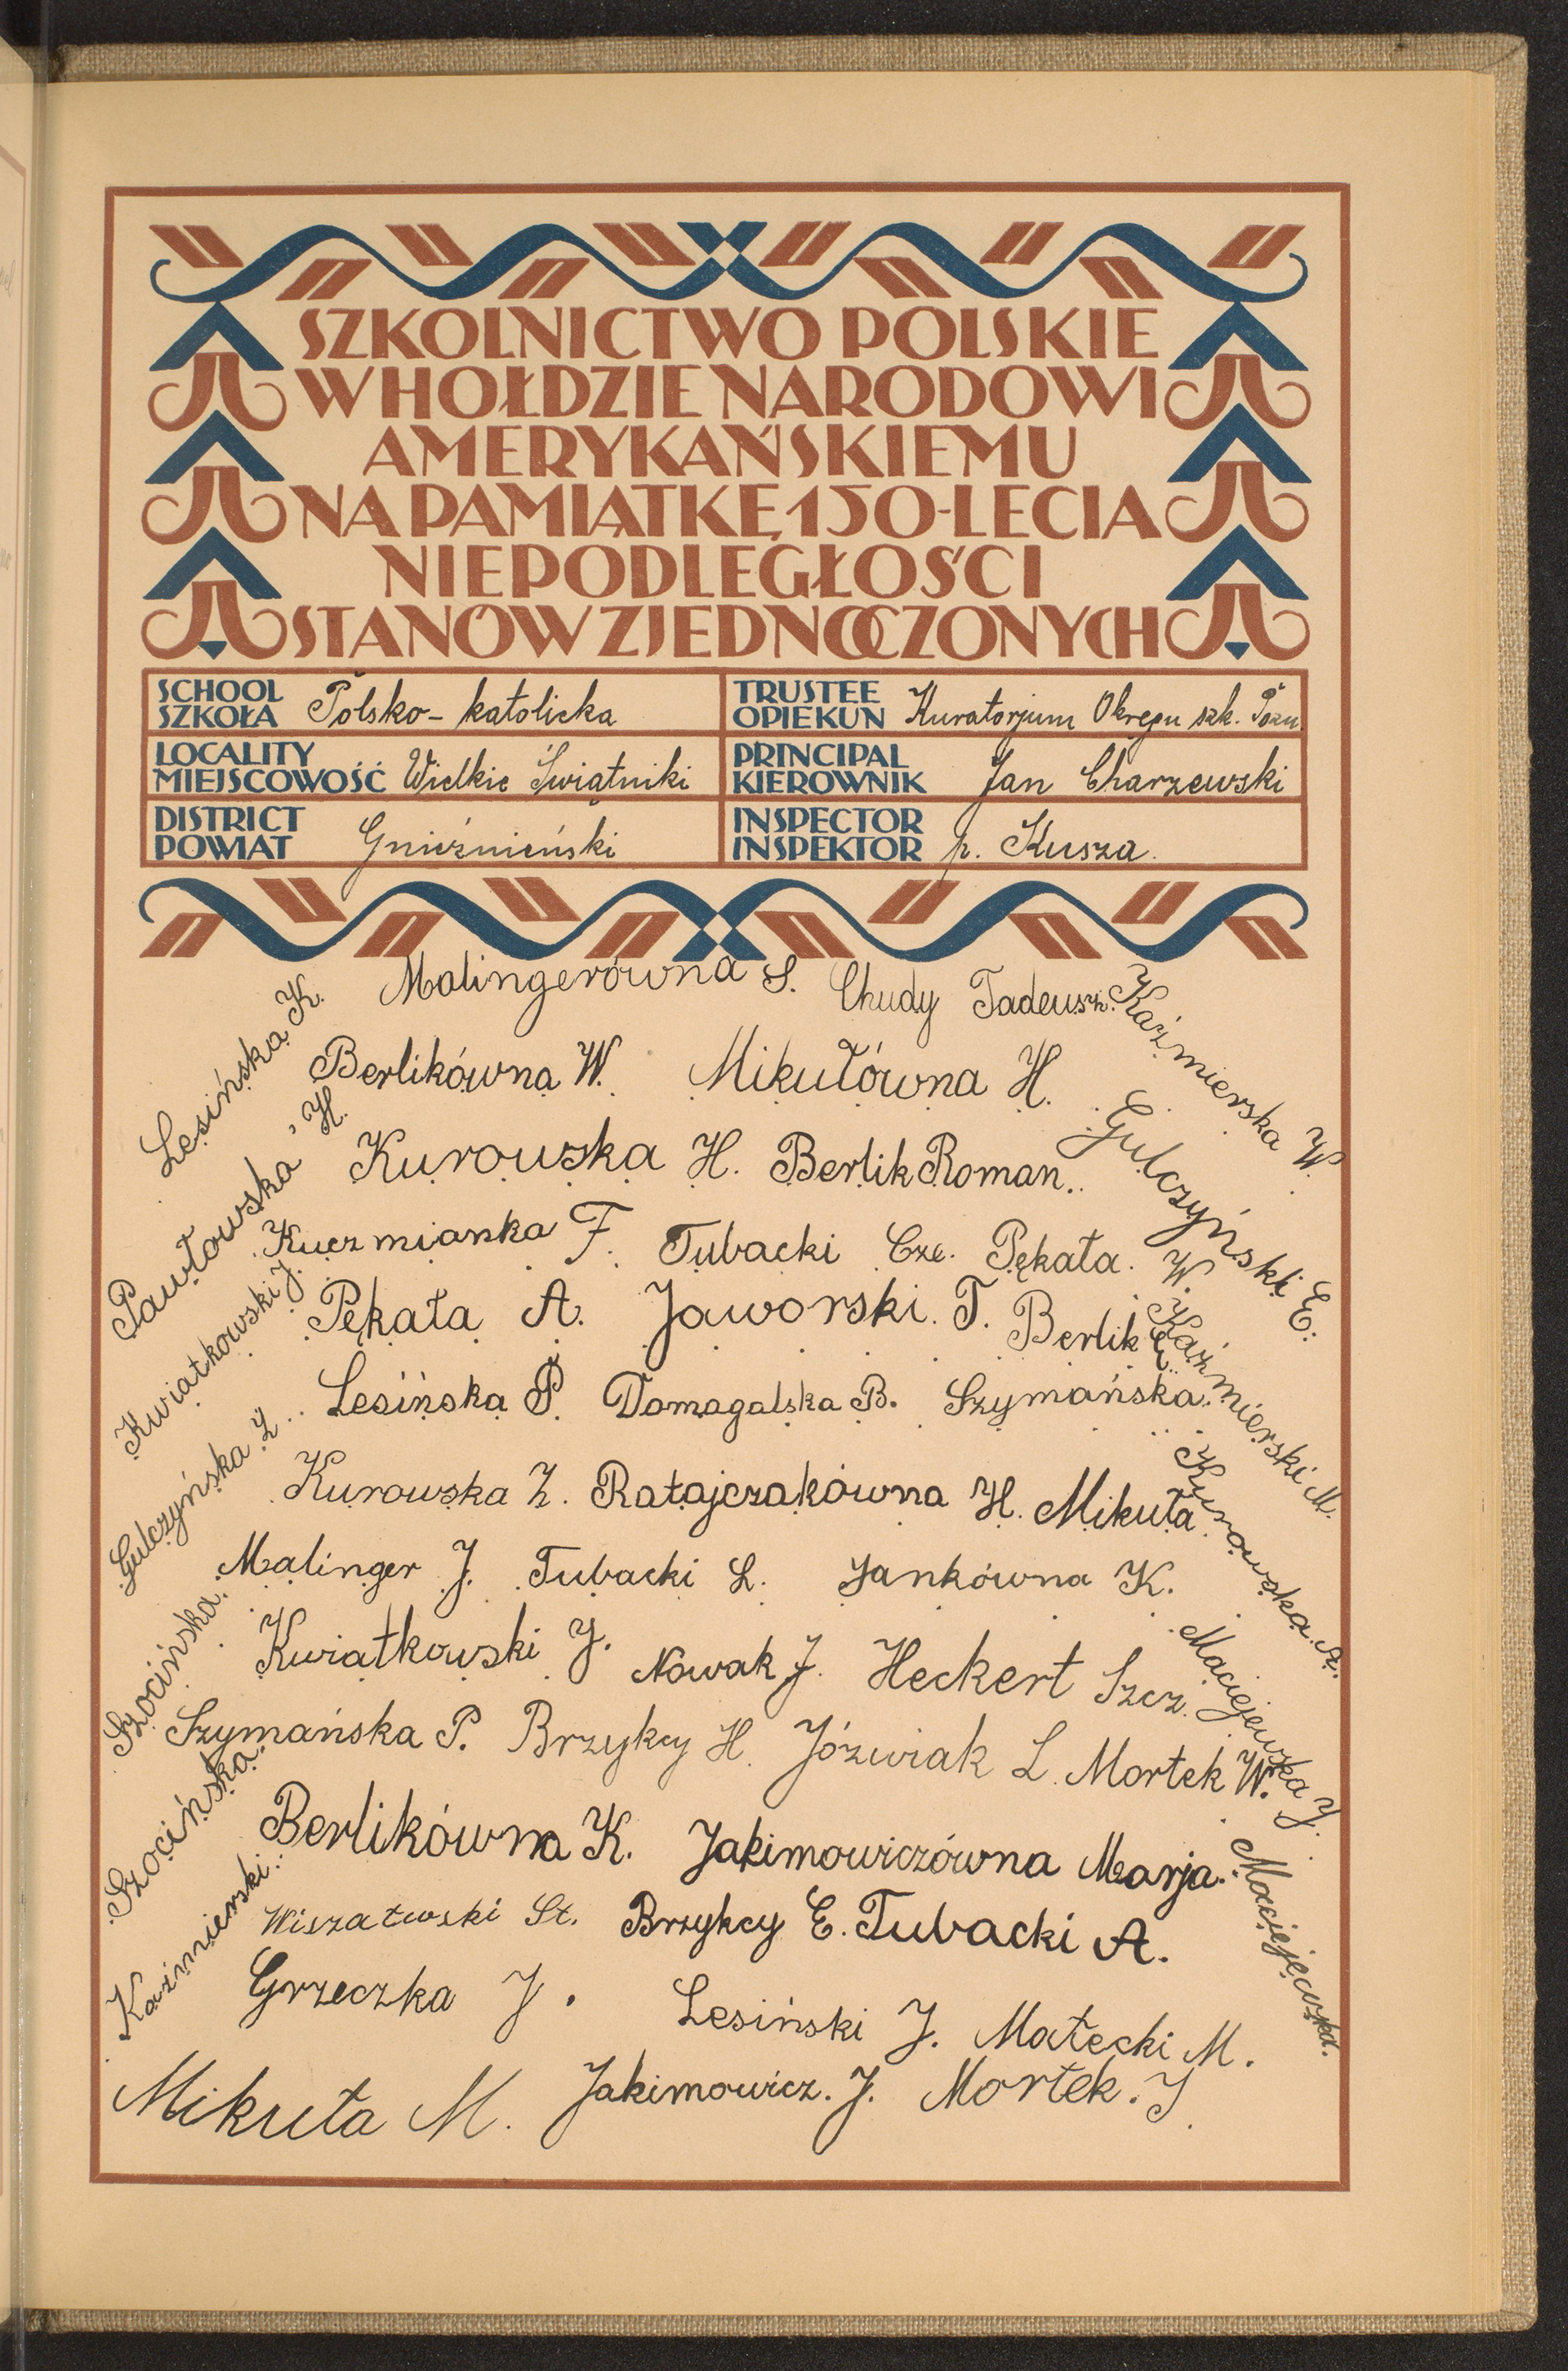 SZKOLNICTWO POLSKIE
W HOŁDZIE NARODOWI
AMERYKAŃSKIEMU
NA PAMIĄTKĘ 150-LECIA
NIEPODLEGŁOŚCI
STANÓW ZJEDNOCZONYCH
SCHOOL
SZKOŁA Polsko-katolicka
TRUSTEE
OPIEKUN Kuratorjum Okręgu szk. Pozn.
LOCALITY
MIEJSCOWOŚĆ Wielkie Świątniki
PRINCIPAL
KIEROWNIK Jan Charzewski
DISTRICT
POWIAT Gnieźnieński
INSPECTOR
INSPEKTOR p. Kusza.
Lesińska K.
Malingerówna S. Chudy Tadeusz.
Kaźmierska W.
Berlikówna W. Mikułówna H.
Pawłowska H.
Kurowska H. Berlik Roman.
Gulczyński E.
Kuczmianka F. Tubacki Cze. Pękała. W.
Kwiatkowski J.
Pękała A. Jaworski. T. Berlik E.
Kaźmierski M.
Gulczyńska Z.
Lesińska P. Domagalska B. Szymańska.
Kurowska Z. Ratajczakówna H. Mikuła.
Kurowska A.
Malinger J. Tubacki L. Jankówna K.
Szocińska.
Kwiatkowski J. Nowak J. Heckert Szcz.
Maciejewska J.
Szymańska P. Brzykcy H. Józwiak L. Mortek W.
Szocińska.
Berlikówna K. Jakimowiczówna Marja.
Kazimierski.
Wiszatwski St. Brzykcy E. Tubacki A.
Maciejewska.
Grzeczka J. Lesiński J. Małecki M.
Mikuła M. Jakimowicz. J. Mortek. J.